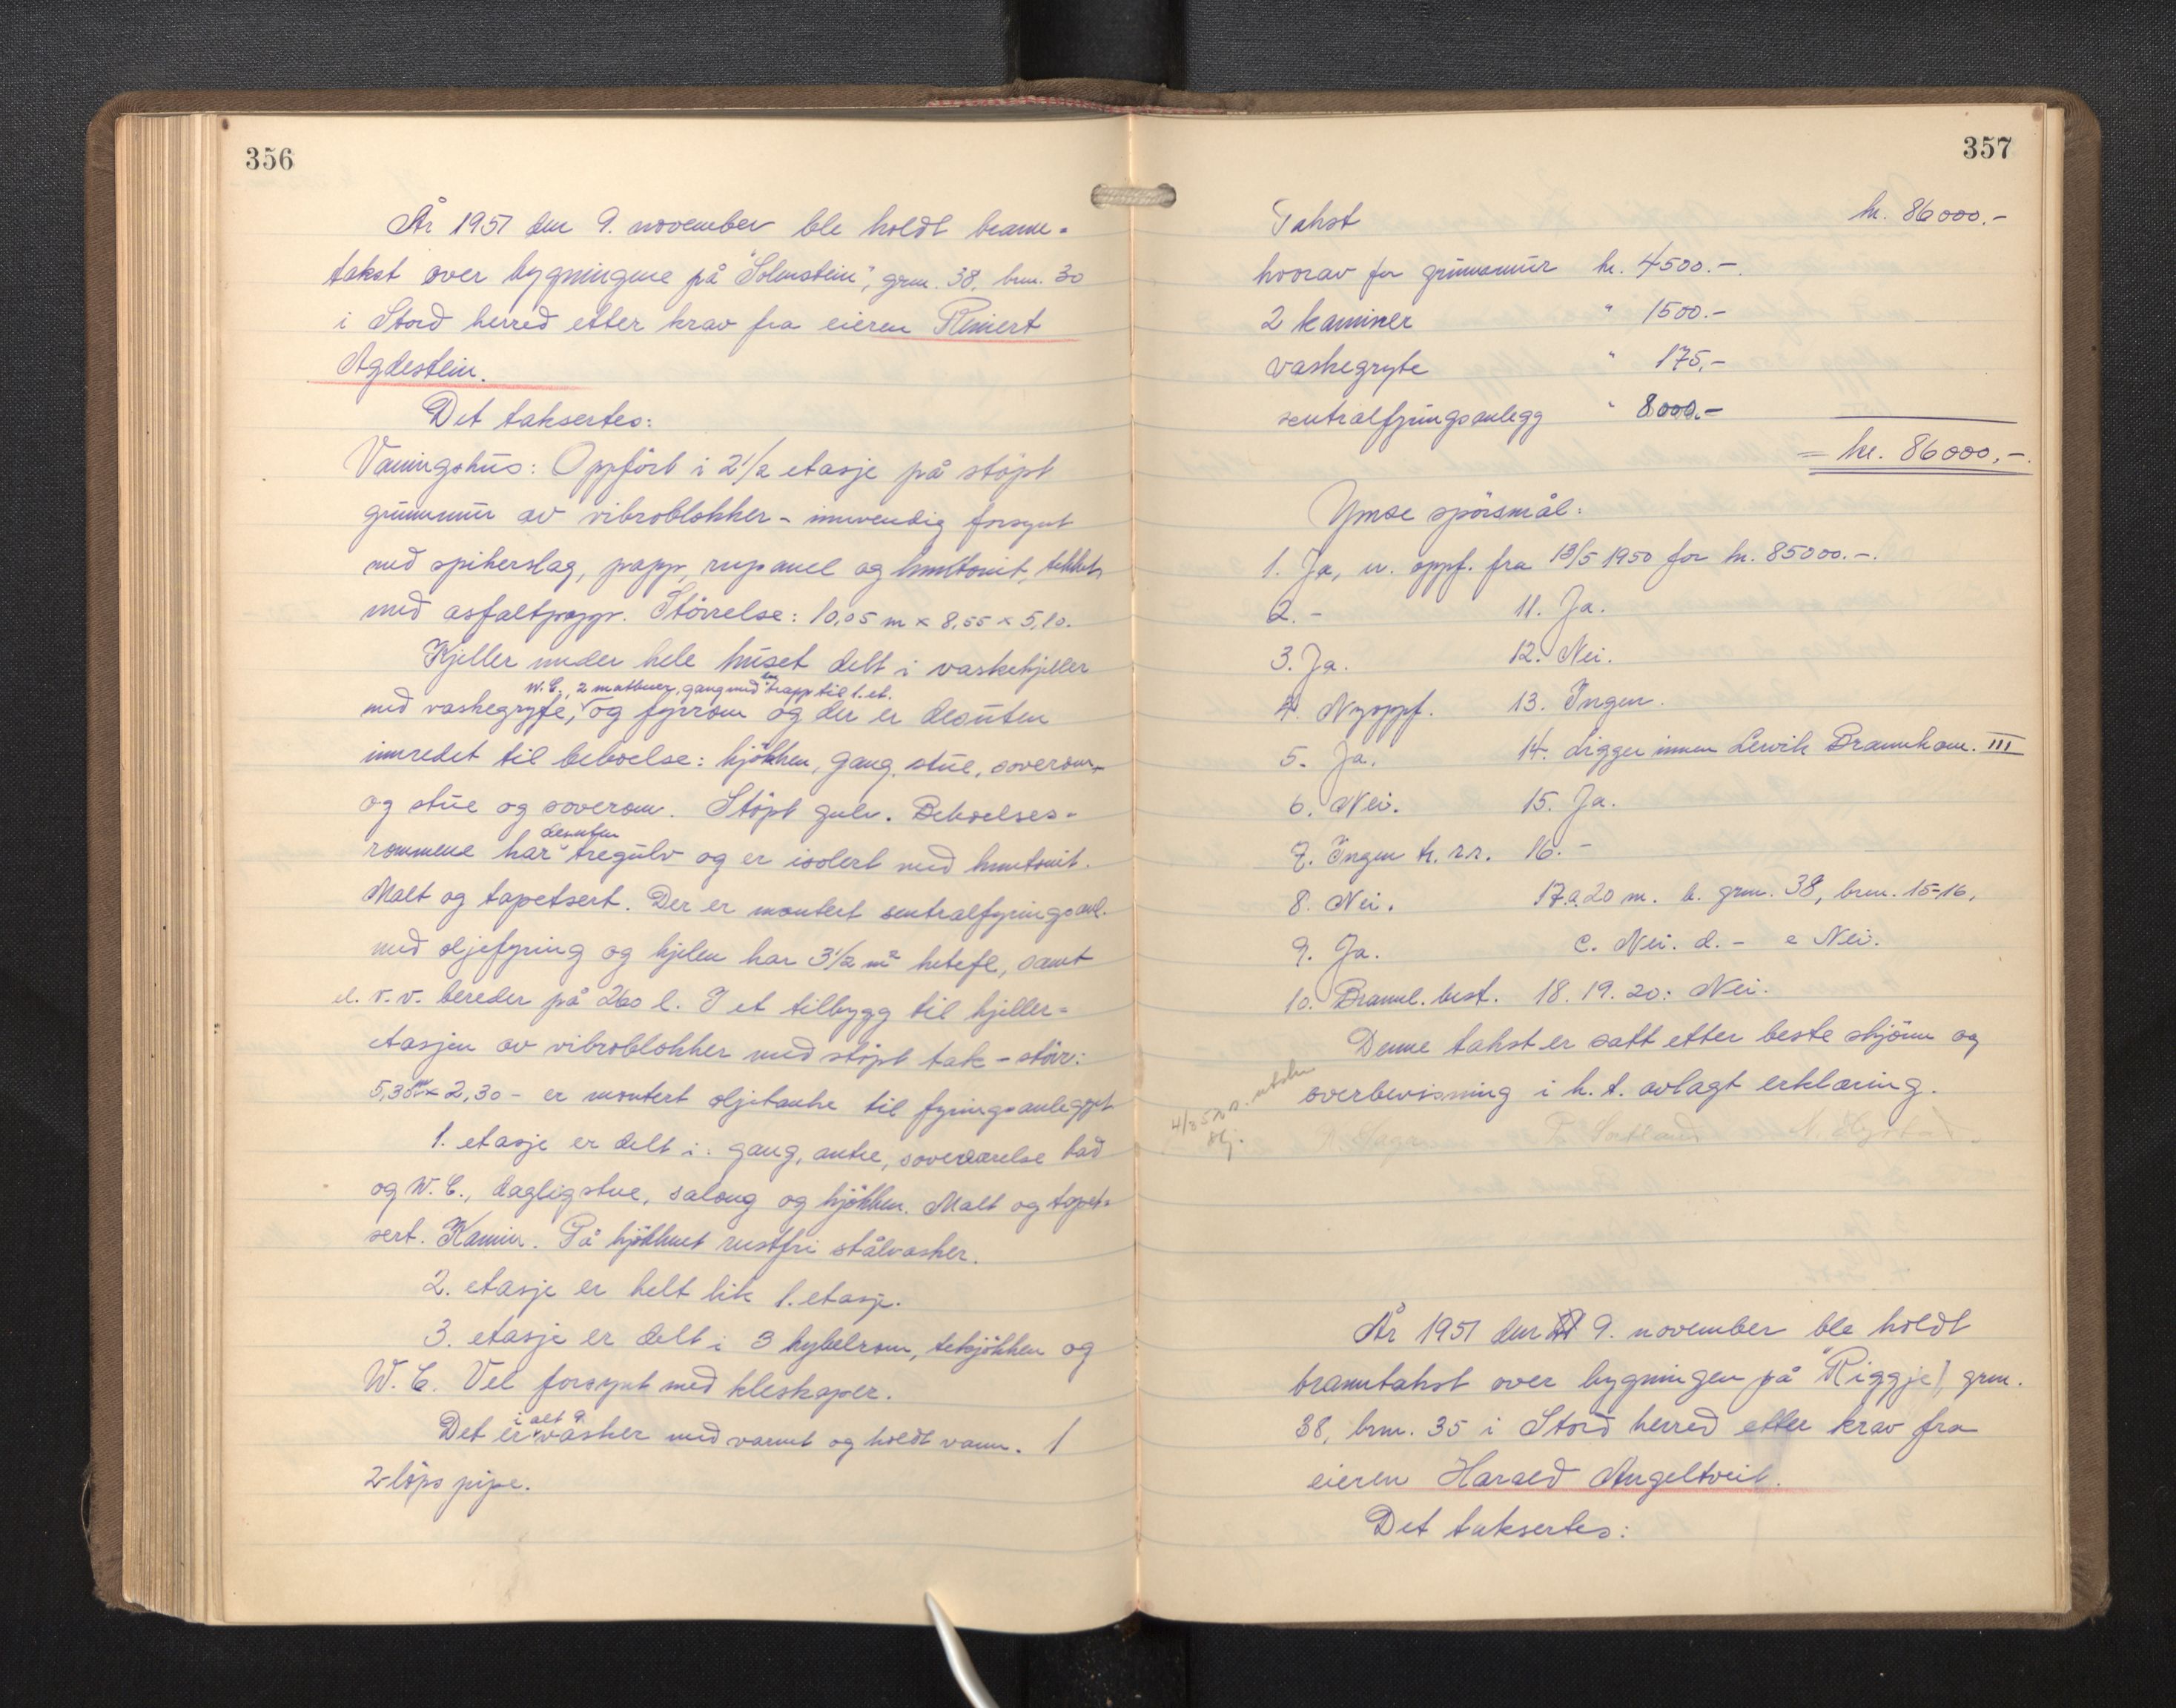 356
År 1951 den 9. november ble holdt brann-
takst over bygningene på "Solmstein", grn. 38, brn. 30
i Stord herred etter krav fra eieren Reinert
Agdestein.
Det taksertes:
Våningshus: Oppfört i 2 1/2 etasje på stöpt
grunnmur av vibroblokker - innvendig forsynt
med spikerslag, papp, rupanel og huntonit, tekket
med asfaltpapp. Störrelse: 10,05 m x 8,55 x 5,10.
Kjeller under hele huset delt i vaskekjeller
W.C., 2 matboer, gang med trapp til 1. et.
med vaskegryte, og fyrrom og der er desuten
innredet til beboelse: kjökken, gang, stue, soverom,
og stue og soverom. Stöpt gulv. Beboelses-
desuten
rommene har tregulv og er isolert med huntonit.
Malt og tapetsert. Der er montert sentralfyringsanl.
med oljefyring og kjelen har 3 1/2 m² hetefl, samt
el. v.v. bereder på 260 l. I et tilbygg til kjeller-
etasjen av vibroblokker med stöpt tak - störr:
5,30 m x 2,30 - er montert oljetanke til fyringsanlegget
1. etasje er delt i: gang, entre, soveværelse bad
og W.C., dagligstue, salong og kjökken. Malt og tapet-
sert. Kamin. På kjökkenet rustfri stålvasker.
2. etasje er helt lik 1. etasje.
3. etasje er delt i 3 hybelrom, tekjökken og
W.C. Vel forsynt med kleskaper.
i alt 9
Det er vasker med varmt og koldt vann. 1
2 löps pipe.
357
Takst kr. 86000.-
hvorav for grunnmur kr. 4500.-
2 kaminer " 1500.-
vaskegryte " 175,-
sentralfyringsanlegg " 8000.-
= kr. 86000,-.
Ymse spörsmål:
1. Ja, u. oppf. fra 13/5 1950 for kr. 85000.-.
2. - 11. Ja.
3. Ja. 12. Nei.
4. Nyoppf. 13. Ingen.
5. Ja. 14. Ligger innen Lervik Brannkom. III
6. Nei. 15. Ja.
7. Ingen k. r.r. 16. -
8. Nei. 17. a. 20 m. b. grn. 38, brn. 15-16,
9. Ja. c. Nei. d. - e Nei.
10. Brannl. best. 18. 19. 20: Nei.
Denne takst er satt etter beste skjönn og
overbevisning i h.t. avlagt erklæring.
År 1951 den 9. november ble holdt
branntakst over bygningen på "Riggje", grn.
38, brn. 35 i Stord herred etter krav fra
eieren Harald Angeltveit.
Det taksertes: